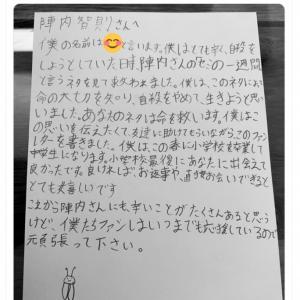 陣内智則さんへ
僕の名前は と言います。僕はとても辛く、自殺を
しようとしていた時、陣内さんのセミの一週間
と言うネタを見て救われました。僕は、このネタにより
命の大切さを知り、自殺をやめて、生きようと思
いました。あなたのネタは命を救います。僕はこ
の思いを伝えたくて、友達に助けてもらいながらこのファン
レターを書きました。僕はこの春に小学校を卒業して
中学生になります。小学校最後にあなたに出会えて
良かったです。良ければ、お返事や、直接お会いできると
とても嬉しいです
これから陣内さんにも辛いことがたくさんあると思う
けど、僕たちファンはいつまでも応援しているので
頑張って下さい。